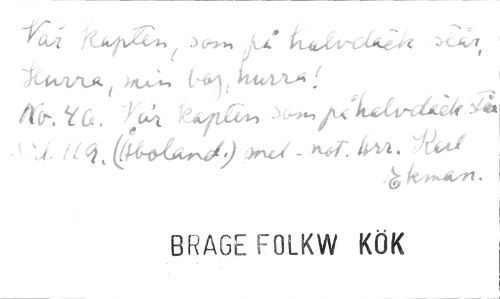 Vår kapten, som på halvdäck står,
Hurra, min boy, hurra!
No. 40. Vår kapten som på halvdäck står
119. (Åboland.) mel - not. arr. Karl
Ekman.
BRAGE FOLKW KÖK